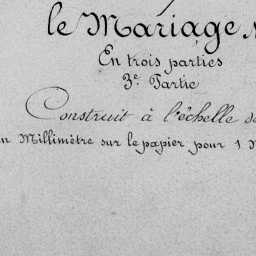 le Mariage
En trois parties
3e Partie
Construit à l'échelle d
n Millimètre sur le papier pour 1 M